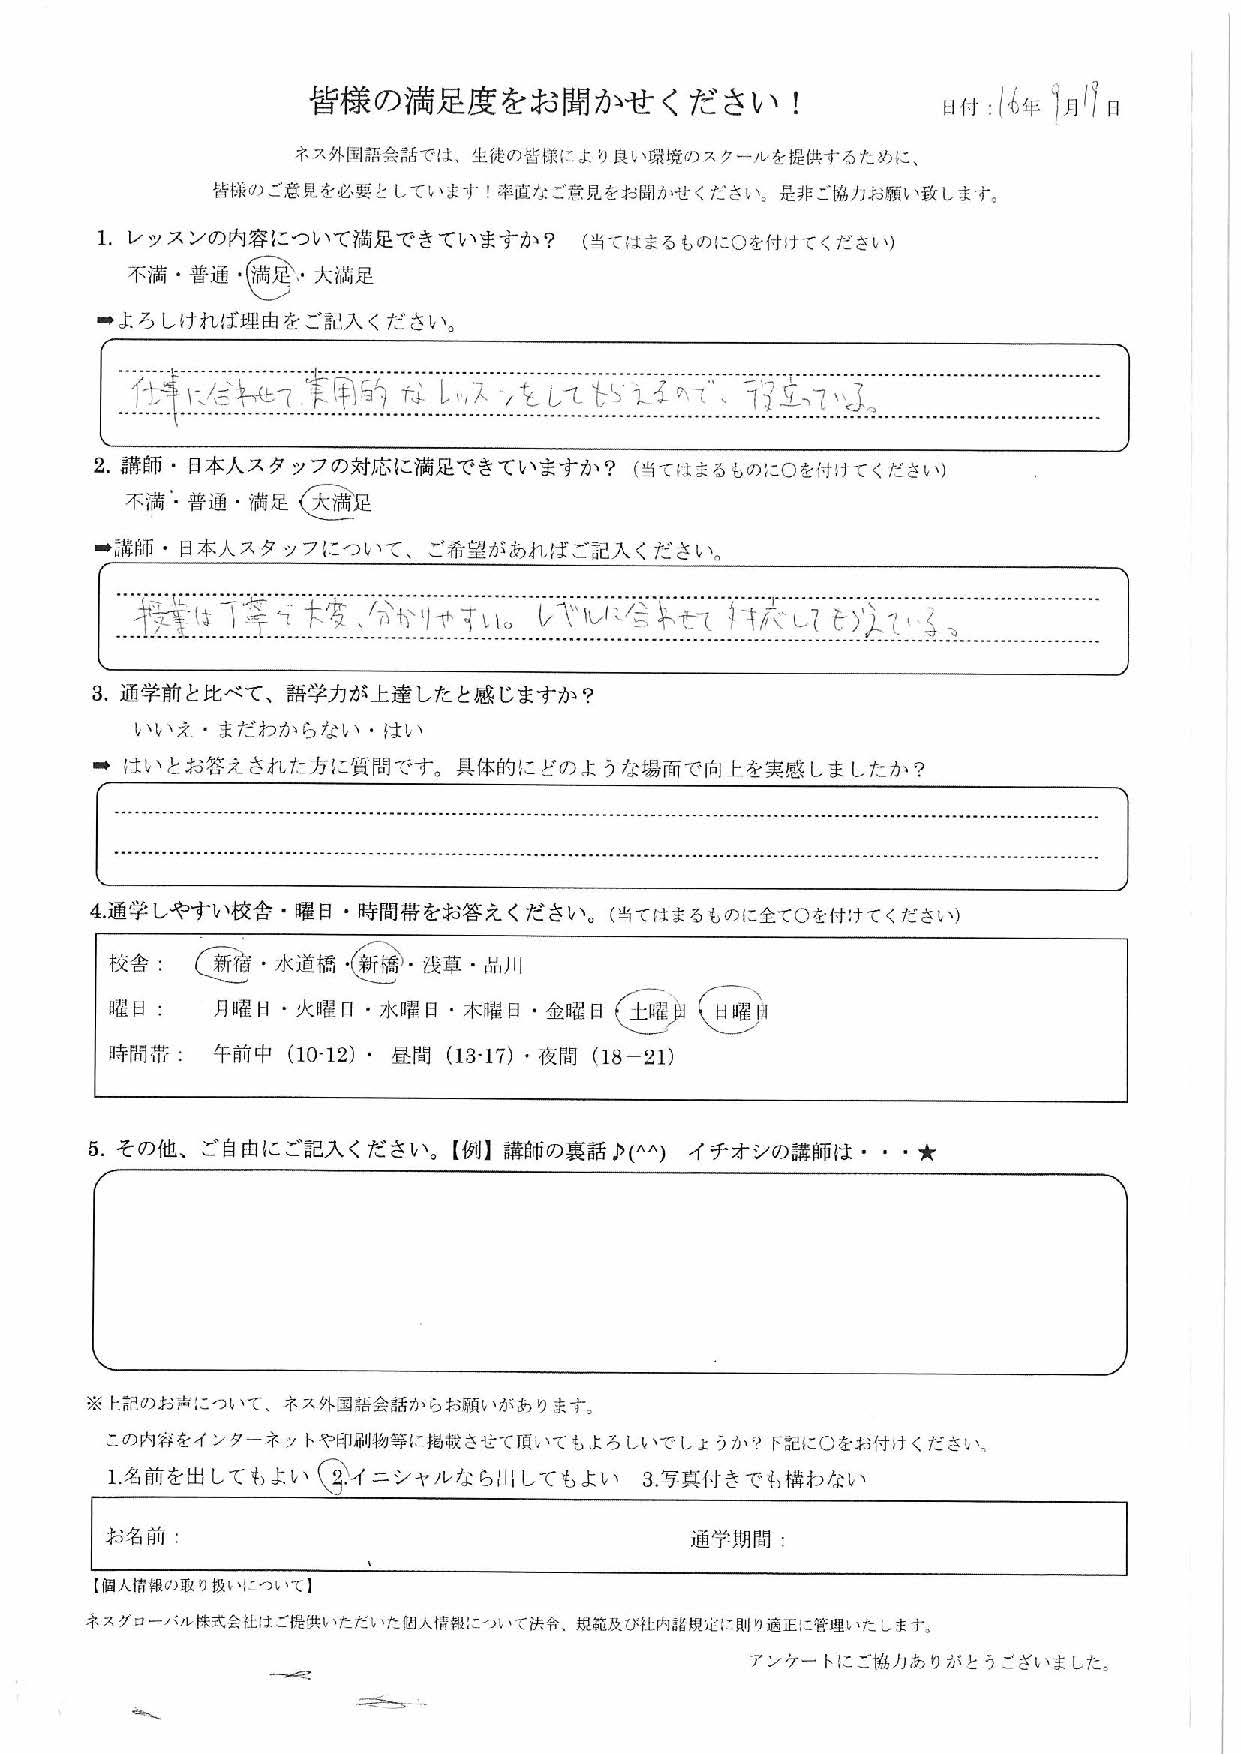 皆様の満足度をお聞かせください！
日付：16年 9月19日
ネス外国語会話では、生徒の皆様により良い環境のスクールを提供するために、
皆様のご意見を必要としています！率直なご意見をお聞かせください。是非ご協力お願い致します。
1. レッスンの内容について満足できていますか？ （当てはまるものに○を付けてください）
不満・普通・満足・大満足
➡よろしければ理由をご記入ください。
仕事に合わせて、実用的なレッスンをしてもらえるので、役立っている。
2. 講師・日本人スタッフの対応に満足できていますか？（当てはまるものに○を付けてください）
不満・普通・満足・大満足
➡講師・日本人スタッフについて、ご希望があればご記入ください。
授業は丁寧で大変、分かりやすい。レベルに合わせて対応してもらえている。
3. 通学前と比べて、語学力が上達したと感じますか？
いいえ・まだわからない・はい
➡ はいとお答えされた方に質問です。具体的にどのような場面で向上を実感しましたか？
4.通学しやすい校舎・曜日・時間帯をお答えください。（当てはまるものに全て○を付けてください）
校舎： 新宿・水道橋・新橋・浅草・品川
曜日： 月曜日・火曜日・水曜日・木曜日・金曜日・土曜日・日曜日
時間帯： 午前中（10-12）・ 昼間（13-17）・夜間（18－21）
5. その他、ご自由にご記入ください。【例】講師の裏話♪(^^) イチオシの講師は・・・★
※上記のお声について、ネス外国語会話からお願いがあります。
この内容をインターネットや印刷物等に掲載させて頂いてもよろしいでしょうか？下記に○をお付けください。
1.名前を出してもよい 2.イニシャルなら出してもよい 3.写真付きでも構わない
お名前： 通学期間：
【個人情報の取り扱いについて】
ネスグローバル株式会社はご提供いただいた個人情報について法令、規範及び社内諸規定に則り適正に管理いたします。
アンケートにご協力ありがとうございました。